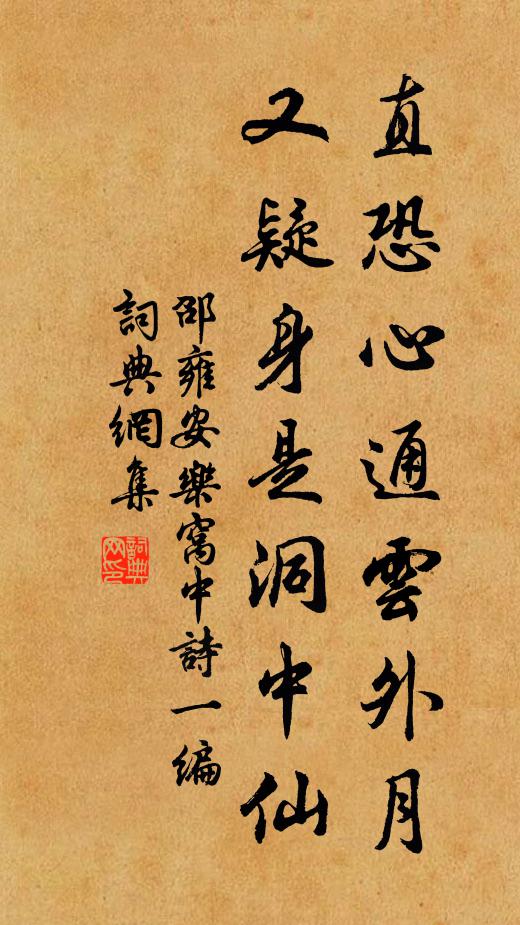 直恐心通雲外月
又疑身是洞中仙
邵雍安樂窩中詩一編
詞典網集
詞典網印